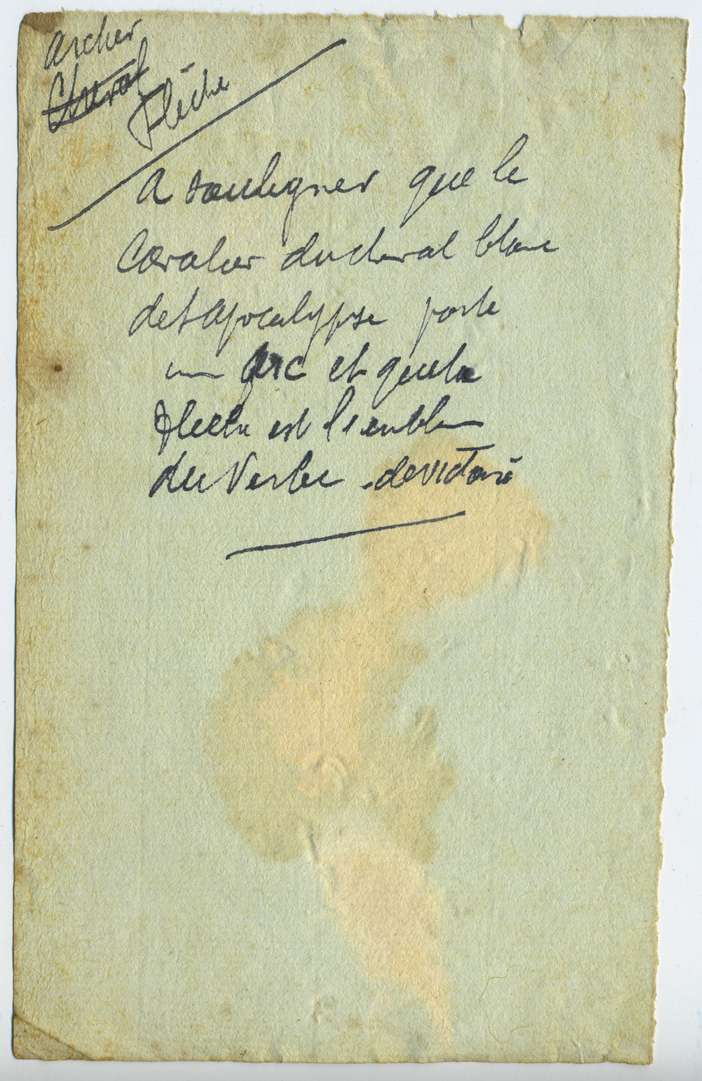 Archer
Cheval
Flèche
A souligner que le
Cavalier du cheval blanc
de l'Apocalypse porte
un Arc et que la
flèche est l'emblème
du Verbe - de victoire